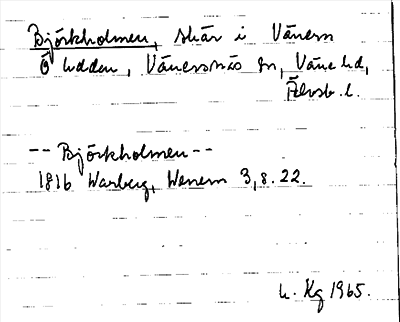 Björkholmen, skär i Vänern
Ö Udden, Vänersnäs sn, Väne hd,
Älvsb. l.
-- Björkholmen --
1816 Warberg, Wenern 3, s. 22.
L. Kg 1965.